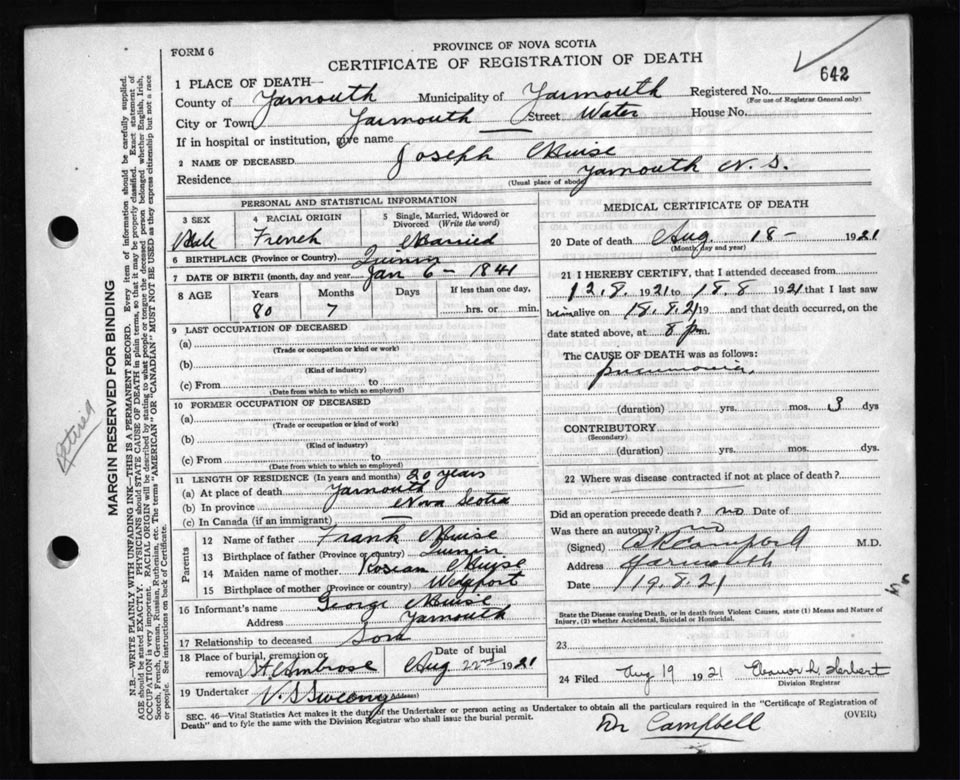 FORM 6
PROVINCE OF NOVA SCOTIA
CERTIFICATE OF REGISTRATION OF DEATH
642
1 PLACE OF DEATH—
County of Yarmouth Municipality of Yarmouth Registered No.
(For use of Registrar General only)
City or Town Yarmouth Street Water House No.
If in hospital or institution, give name
2 NAME OF DECEASED Joseph Muise
Residence Yarmouth N. S.
(Usual place of abode)
PERSONAL AND STATISTICAL INFORMATION
3 SEX 4 RACIAL ORIGIN 5 Single, Married, Widowed or Divorced (Write the word)
Male French Married
6 BIRTHPLACE (Province or Country) Quinan
7 DATE OF BIRTH (month, day and year) Jan 6 – 1841
8 AGE Years Months Days If less than one day,
80 7 hrs. or min.
9 LAST OCCUPATION OF DECEASED
(a)
(Trade or occupation or kind or work)
(b)
(Kind of industry)
(c) From to
(Date from which to which so employed)
10 FORMER OCCUPATION OF DECEASED
(a)
(Trade or occupation or kind of work)
(b)
(Kind of industry)
(c) From to
(Date from which to which so employed)
11 LENGTH OF RESIDENCE (In years and months) 20 years
(a) At place of death Yarmouth
(b) In province Nova Scotia
(c) In Canada (if an immigrant)
Parents
12 Name of father Frank Muise
13 Birthplace of father (Province or country) Quinan
14 Maiden name of mother Rosian Muise
15 Birthplace of mother (Province or country) Wedgport
16 Informant's name George Muise
Address Yarmouth
17 Relationship to deceased Son
18 Place of burial, cremation or removal St Ambrose Date of burial Aug 22nd 1921
19 Undertaker V. S Sweeny (Address)
MEDICAL CERTIFICATE OF DEATH
20 Date of death Aug. 18 – 1921
(Month, day and year)
21 I HEREBY CERTIFY, that I attended deceased from
12.8. 1921 to 18.8 1921 that I last saw
him alive on 18.8.21 19 and that death occurred, on the
date stated above, at 8 p m.
The CAUSE OF DEATH was as follows:
pneumonia.
(duration) yrs. mos. 3 dys
CONTRIBUTORY
(Secondary)
(duration) yrs. mos. dys.
22 Where was disease contracted if not at place of death?
Did an operation precede death? no Date of
Was there an autopsy? no
(Signed) Campbell M.D.
Address Yarmouth
Date 19.8.21
State the Disease causing Death, or in death from Violent Causes, state (1) Means and Nature of
Injury, (2) whether Accidental, Suicidal or Homicidal.
23
24 Filed Aug 19 1921 Eleanor L. Herbert
Division Registrar
SEC. 46—Vital Statistics Act makes it the duty of the Undertaker or person acting as Undertaker to obtain all the particulars required in the "Certificate of Registration of
Death" and to fyle the same with the Division Registrar who shall issue the burial permit.
(OVER)
Dr Campbell
Retired
MARGIN RESERVED FOR BINDING
N.B.—WRITE PLAINLY WITH UNFADING INK—THIS IS A PERMANENT RECORD. Every item of information should be carefully supplied.
AGE should be stated EXACTLY. PHYSICIANS should STATE CAUSE OF DEATH in plain terms, so that it may be properly classified. Exact statement of
OCCUPATION is very important. RACIAL ORIGIN will be described by stating to what people or tongue the deceased person belonged whether English, Irish,
Scotch, French, German, Russian, Ruthenian, etc. The terms "AMERICAN" OR "CANADIAN" MUST NOT BE USED as they express citizenship but not a race
or people. See instructions on back of Certificate.